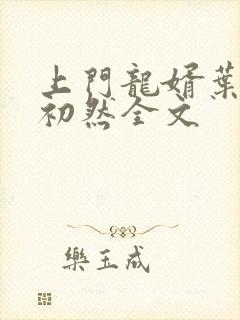 上門龍婿葉
初然全文
樂玉成